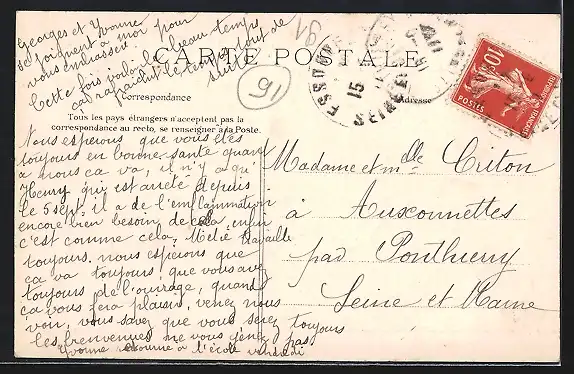 Georges et Yvonne
se joignent à moi pour
vous embrasser.
Cette fois voilà le beau temps
ça rafraichit le temps tout de
suite
CARTE POSTALE
91
91
Correspondance
Adresse
Tous les pays étrangers n'acceptent pas la
correspondance au recto, se renseigner à la Poste.
15
10c
POSTES
REPUBLIQUE FRANÇAISE
Nous esperons que vous êtes
toujours en bonne santé quand
à nous ça va, il n'y a qu'
Henry qui est arieté depuis
le 5 sept, il a de l'emflammation
encore bien besoin de cela, enfin
c'est comme cela, travaille
toujours. nous esperons que
ça va toujours, que vous avez
toujours de l'ouvrage, quand
ça vous fera plaisir, venez nous
voir, vous savez que vous serez toujours
les bienvenues ne vous genez pas
Yvonne retourne à l'école vendredi
Madame et Mlle Criton
à Auxonnettes
par Ponthierry
Seine et Marne